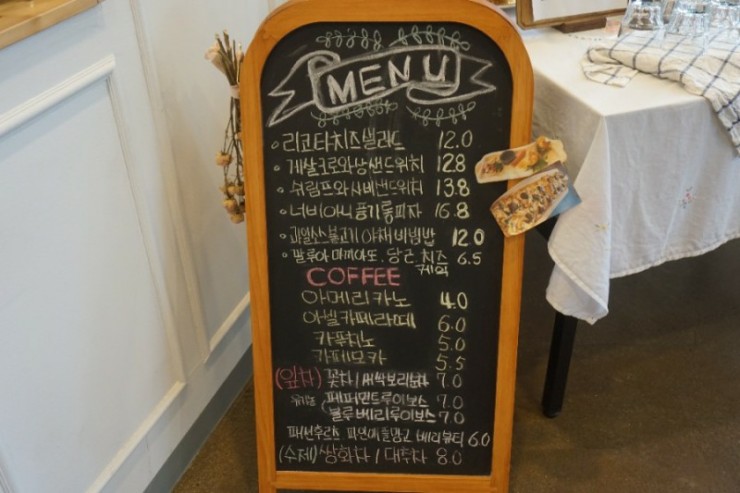 MENU
리코타치즈샐러드 12.0
게살크로와상샌드위치 12.8
쉬림프와사비샌드위치 13.8
너비아니 풍기롱피자 16.8
과일소스불고기야채비빔밥 12.0
말루아마끼아또. 당근 치즈 6.5
케익
COFFEE
아메리카노 4.0
아넬카페라떼 6.0
카푸치노 5.0
카페모카 5.5
(잎차) 꽃차 / 새싹보리순차 7.0
페퍼민트루이보스 7.0
블루베리루이보스 7.0
패션후르츠 파인애플망고 베리뷰티 6.0
(수제) 쌍화차 / 대추차 8.0